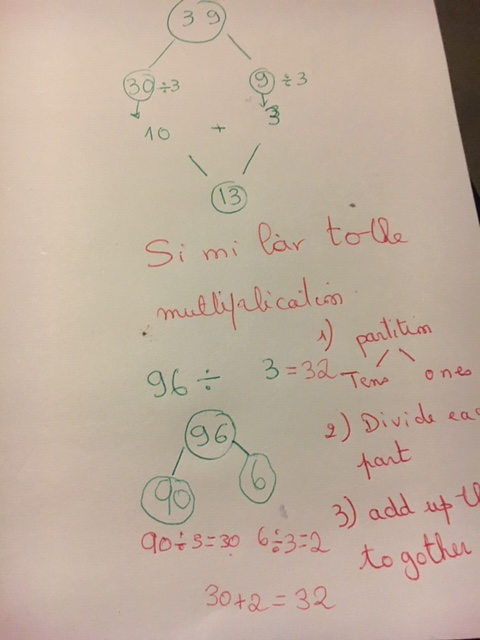 39
30 ÷3 9 ÷3
10 + 3
13
Similar to the
multiplication.
1) partition
96 ÷ 3 = 32 Tens ones
96
2) Divide eac
part
90 6
3) add up th
90÷3=30 6÷3=2
to gother
30+2=32